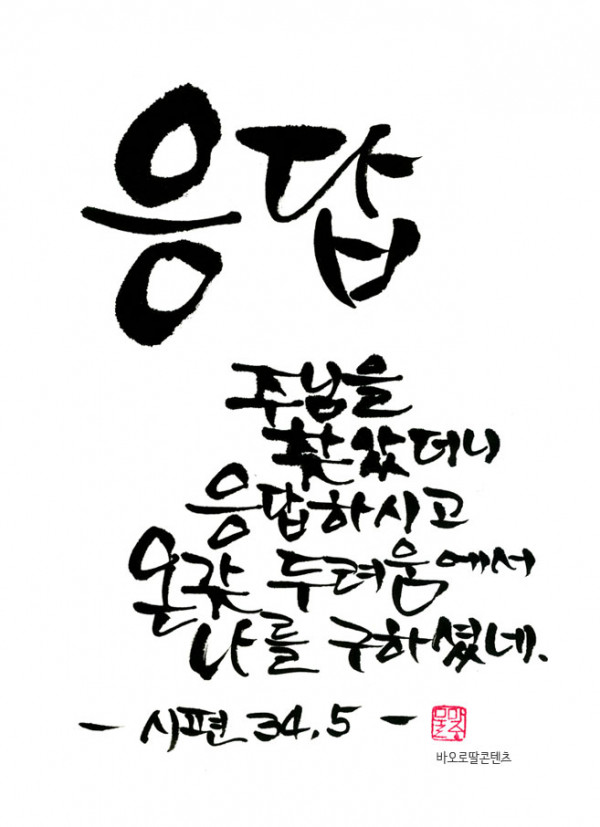 응답
주님을
찾았더니
응답하시고
온갖 두려움에서
나를 구하셨네.
- 시편 34,5 -
바오로딸콘텐츠